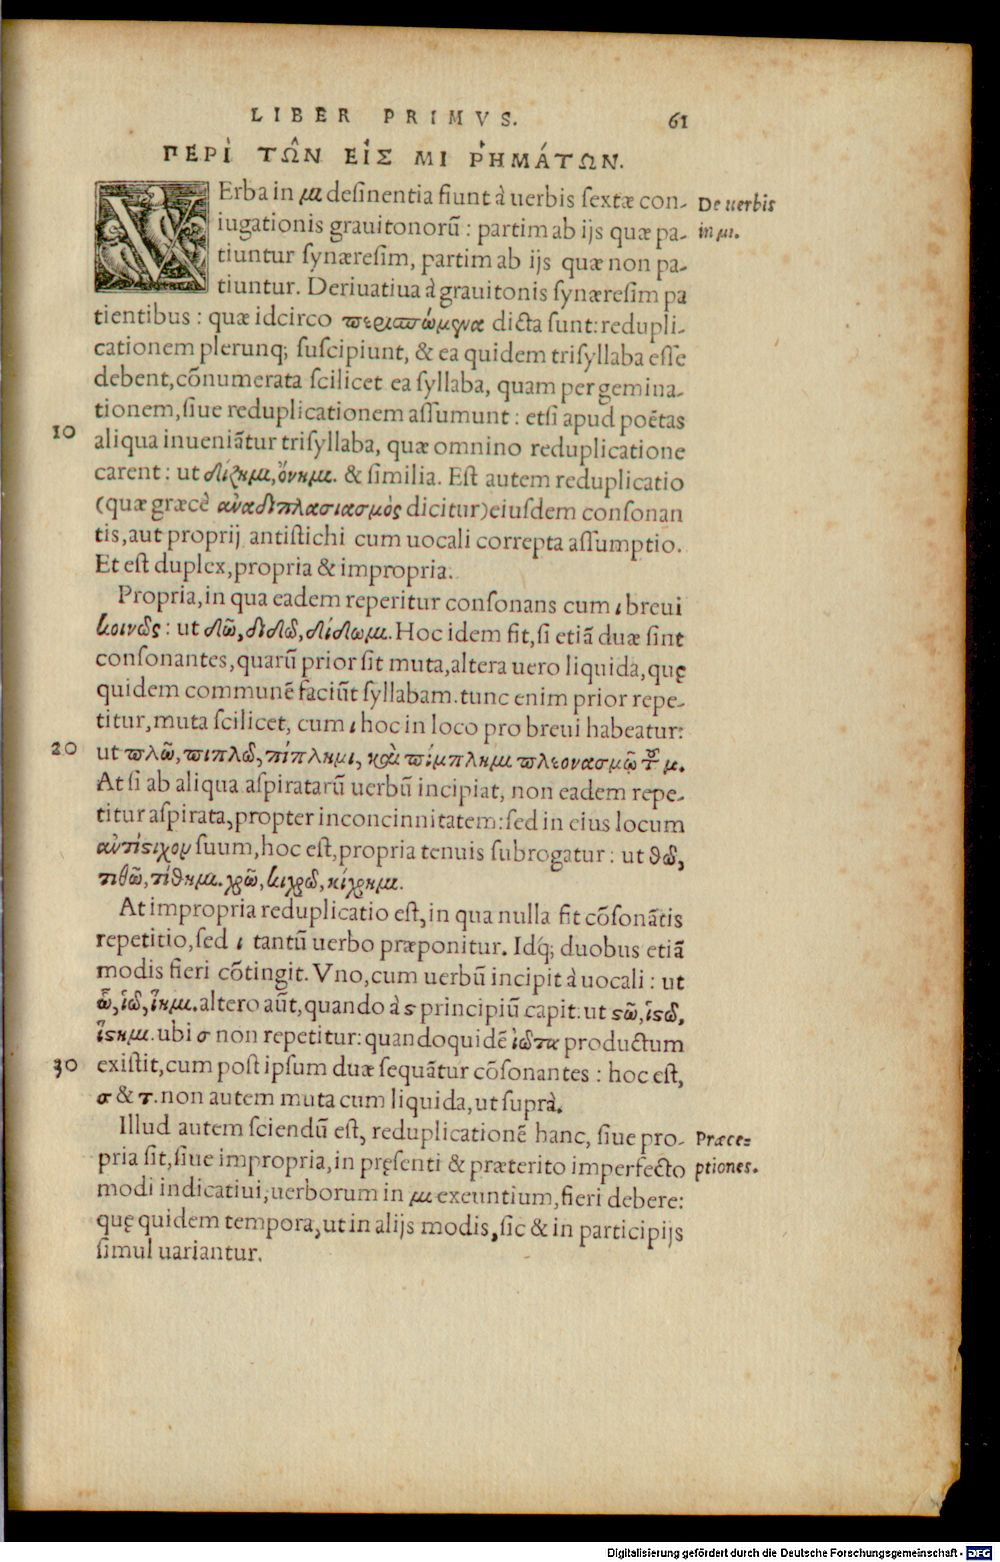 LIBER PRIMVS. 61
ΠΕΡῚ ΤΩ͂Ν ΕἸΣ ΜΙ ῬΗΜΆΤΩΝ.
VErba in μι desinentia fiunt à uerbis sextæ con- De uerbis
iugationis grauitonorũ: partim ab ijs quæ pa- in μι.
tiuntur synæresim, partim ab ijs quæ non pa-
tiuntur. Deriuatiua à grauitonis synæresim pa
tientibus: quæ idcirco περισπώμενα dicta sunt: redupli-
cationem plerunq; suscipiunt, & ea quidem trisyllaba esse
debent, cõnumerata scilicet ea syllaba, quam per gemina-
tionem, siue reduplicationem assumunt: etsi apud poëtas
10 aliqua inueniãtur trisyllaba, quæ omnino reduplicatione
carent: ut δίζημι, ὄνημι. & similia. Est autem reduplicatio
(quæ græcè ἀναδιπλασιασμὸς dicitur) eiusdem consonan
tis, aut proprij antistichi cum uocali correpta assumptio.
Et est duplex, propria & impropria.
Propria, in qua eadem reperitur consonans cum ι breui
κοινῶς: ut δῶ, διδῶ, δίδωμι. Hoc idem fit, si etiã duæ sint
consonantes, quarũ prior sit muta, altera uero liquida, quę
quidem communẽ faciũt syllabam. tunc enim prior repe-
titur, muta scilicet, cum ι hoc in loco pro breui habeatur:
20 ut πλῶ, πιπλῶ, πίπλημι, καὶ πίμπλημι πλεονασμῷ τοῦ μ.
At si ab aliqua aspiratarũ uerbũ incipiat, non eadem repe-
titur aspirata, propter inconcinnitatem: sed in eius locum
ἀντίστιχον suum, hoc est, propria tenuis subrogatur: ut θῶ,
τιθῶ, τίθημι. χρῶ, κιχρῶ, κίχρημι.
At impropria reduplicatio est, in qua nulla fit cõsonãtis
repetitio, sed ι tantũ uerbo præponitur. Idq́; duobus etiã
modis fieri cõtingit. Vno, cum uerbũ incipit à uocali: ut
ὧ, ἱῶ, ἵημι. altero aũt, quando à ϛ principiũ capit: ut ϛῶ, ἱϛῶ,
ἵϛημι. ubi σ non repetitur: quandoquidẽ ἰῶτα productum
30 existit, cum post ipsum duæ sequãtur cõsonantes: hoc est,
σ & τ. non autem muta cum liquida, ut suprà.
Illud autem sciendũ est, reduplicationẽ hanc, siue pro- Præce-
pria sit, siue impropria, in pręsenti & præterito imperfecto ptiones.
modi indicatiui, uerborum in μι exeuntium, fieri debere:
quę quidem tempora, ut in alijs modis, sic & in participijs
simul uariantur.
Digitalisierung gefördert durch die Deutsche Forschungsgemeinschaft - DFG